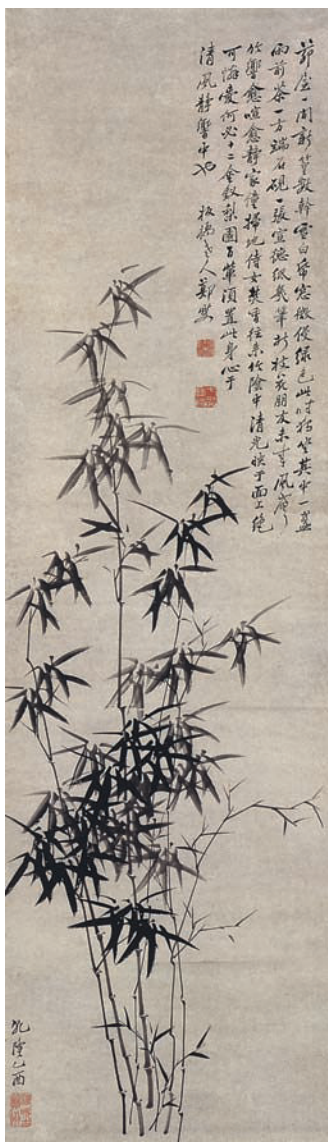 茆屋一間新篁數幹雪白帋窓微侵緑色此時獨坐其中一盞
雨前茶一方端石硯一張宣德紙幾筆折枝花朋友來至風聲
竹響愈喧愈靜家僮掃地侍女焚香往來竹陰中清光映于面上絶
可憐愛何必十二金釵梨園百輩須置此身心于
清風靜響中也 板橋老人鄭燮
乾隆乙酉